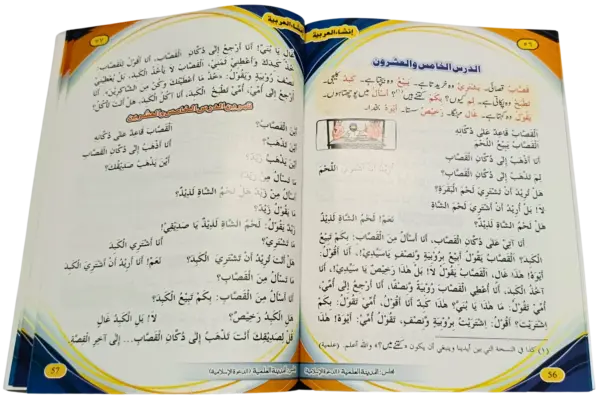 إنشاء العربية
٥٦
الدرس الخامس والعشرون
قَصَّابٌ قصائی۔ يَشْتَرِيْ وہ خریدتا ہے۔ يَبِيْعُ وہ بیچتا ہے۔ كَبِدٌ کلیجی۔
تَطْبُخُ وہ پکاتی ہے۔ لِمَ کیوں؟ بِكَمْ کتنے میں؟(١) أَسْأَلُ میں پوچھتا ہوں۔
يَقُوْلُ وہ کہتا ہے۔ غَالٍ مہنگا۔ رَخِيْصٌ سستا۔
اَلْقَصَّابُ قَاعِدٌ عَلَى دُكَّانِهِ
اَلْقَصَّابُ يَبِيْعُ اللَّحْمَ
أَنَا أَذْهَبُ إِلَى دُكَّانِ الْقَصَّابِ
لِمَ تَذْهَبُ إِلَى دُكَّانِ الْقَصَّابِ؟
أَنَا أُرِيْدُ أَنْ أَشْتَرِيَ اللَّحْمَ
هَلْ تُرِيْدُ أَنْ تَشْتَرِيَ لَحْمَ الْبَقَرَةِ؟
لَا! بَلْ أُرِيْدُ أَنْ أَشْتَرِيَ لَحْمَ الشَّاةِ
هَلْ لَحْمُ الشَّاةِ لَذِيْذٌ؟ نَعَمْ! لَحْمُ الشَّاةِ لَذِيْذٌ
أَنَا آتِيْ عَلَى دُكَّانِ الْقَصَّابِ، أَنَا أَسْأَلُ مِنَ الْقَصَّابِ: بِكَمْ تَبِيْعُ
الْكَبِدَ؟ اَلْقَصَّابُ يَقُوْلُ أَبِيْعُ الْكَبِدَ بِرُوْبِيَةٍ وَنِصْفٍ يَا سَيِّدِيْ!، أَنَا أَقُوْلُ:
أَيْوَهْ! هَذَا غَالٍ، اَلْقَصَّابُ يَقُوْلُ لَا! بَلْ هَذَا رَخِيْصٌ يَا سَيِّدِيْ! أَنَا
آخُذُ الْكَبِدَ، أَنَا أُعْطِي الْقَصَّابَ رُوْبِيَةً وَنِصْفًا، أَنَا أَرْجِعُ إِلَى أُمِّيْ،
أُمِّيْ تَقُوْلُ: مَا هَذَا يَا بُنَيَّ؟ هَذَا كَبِدٌ أَنَا أَقُوْلُ، أُمِّيْ تَقُوْلُ: بِكَمْ
اِشْتَرَيْتَ؟ أَنَا أَقُوْلُ: اِشْتَرَيْتُ بِرُوْبِيَةٍ وَنِصْفٍ، تَقُوْلُ أُمِّيْ: أَيْوَهْ! هَذَا
(١) كذا في النسخة التي بين أيدينا وينبغي أن يكون "کتنے میں؟" والله أعلم. (علمية)
مجلس: المدينة العلمية (الدعوة الإسلامية)
56
إنشاء العربية
٥٧
غَالٍ يَا بُنَيَّ! أَنَا أَرْجِعُ إِلَى دُكَّانِ الْقَصَّابِ، أَنَا أَقُوْلُ لِلْقَصَّابِ:
خُذْ كَبِدَكَ وَأَعْطِنِيْ ثَمَنِيْ، اَلْقَصَّابُ لَا يَأْخُذُ الْكَبِدَ، بَلْ يُعْطِيْنِيْ
نِصْفَ رُوْبِيَةٍ وَيَقُوْلُ: خُذْ مَا أَعْطَيْتُكَ وَكُنْ مِنَ الشَّاكِرِيْنَ، أَنَا
أَرْجِعُ إِلَى أُمِّيْ، أُمِّيْ تَطْبُخُ الْكَبِدَ، أَنَا آكُلُ الْكَبِدَ، هَلْ أَنْتَ تَأْكُلُ؟
أَيْنَ الْقَصَّابُ؟ اَلْقَصَّابُ قَاعِدٌ عَلَى دُكَّانِهِ
أَيْنَ تَذْهَبُ؟ أَنَا أَذْهَبُ إِلَى دُكَّانِ الْقَصَّابِ
أَيْنَ يَذْهَبُ زَيْدٌ؟ أَيْنَ يَذْهَبُ صَدِيْقُكَ؟
مَا تَسْأَلُ مِنْ زَيْدٍ؟
أَسْأَلُ مِنْ زَيْدٍ هَلْ لَحْمُ الشَّاةِ لَذِيْذٌ؟
مَا يَقُوْلُ زَيْدٌ؟
زَيْدٌ يَقُوْلُ: لَحْمُ الشَّاةِ لَذِيْذٌ يَا صَدِيْقِيْ!
مَا تَشْتَرِيْ؟ أَنَا أَشْتَرِي الْكَبِدَ
هَلْ أَنْتَ تُرِيْدُ أَنْ تَشْتَرِيَ الْكَبِدَ؟ نَعَمْ! أَنَا أُرِيْدُ أَنْ أَشْتَرِيَ الْكَبِدَ
مَا تَسْأَلُ مِنَ الْقَصَّابِ؟
أَنَا أَسْأَلُ مِنَ الْقَصَّابِ: بِكَمْ تَبِيْعُ الْكَبِدَ؟
هَلِ الْكَبِدُ رَخِيْصٌ؟ لَا! بَلِ الْكَبِدُ غَالٍ
قُلْ لِصَدِيْقِكَ أَنْتَ تَذْهَبُ إِلَى دُكَّانِ الْقَصَّابِ... إِلَى آخِرِ الْقِصَّةِ.
مجلس: المدينة العلمية (الدعوة الإسلامية)
57